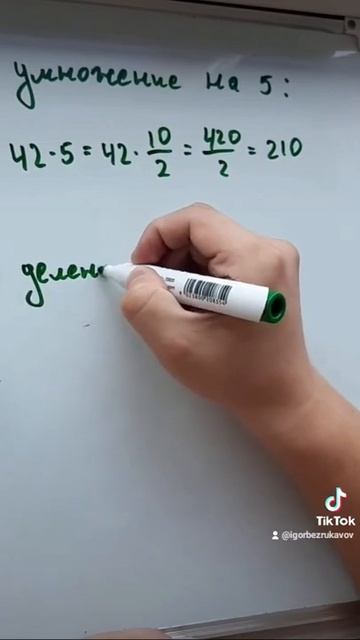 умножение на 5:
42·5 = 42· 10/2 = 420/2 = 210
делен
TikTok
@igorbezrukavov